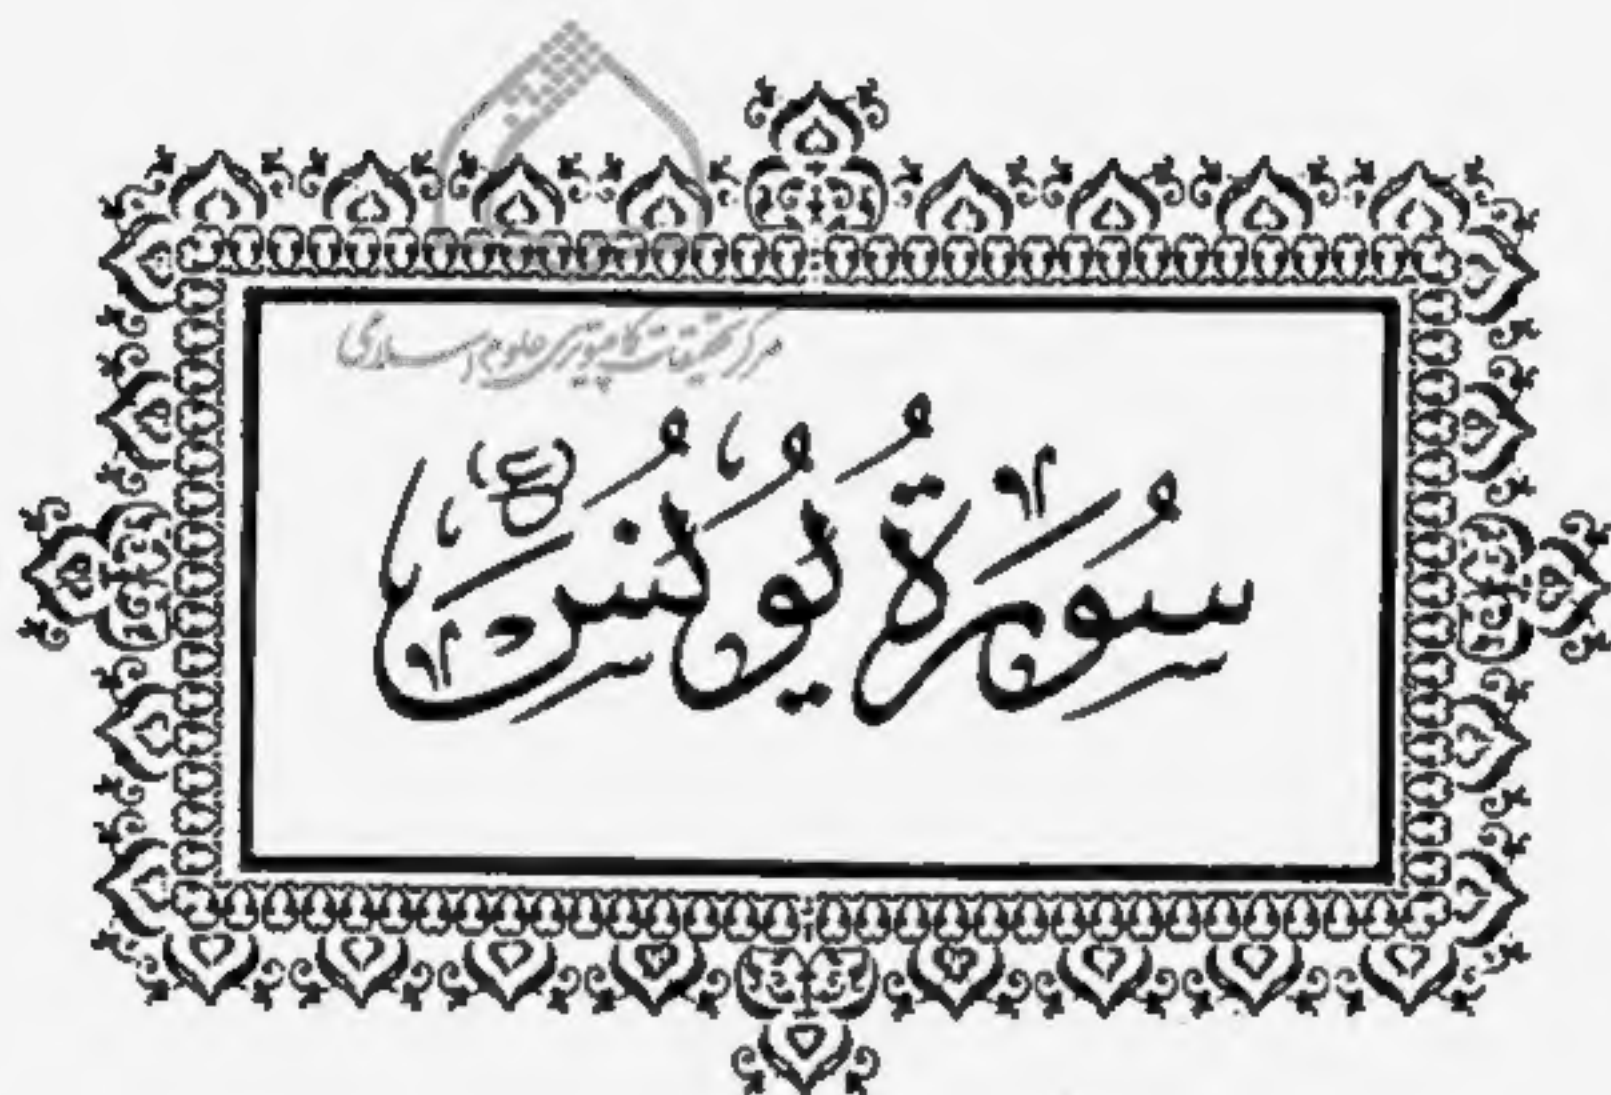 مرکز تحقیقات کامپیوتری علوم اسلامی
سُورَةُ يُونُسَ (ع)